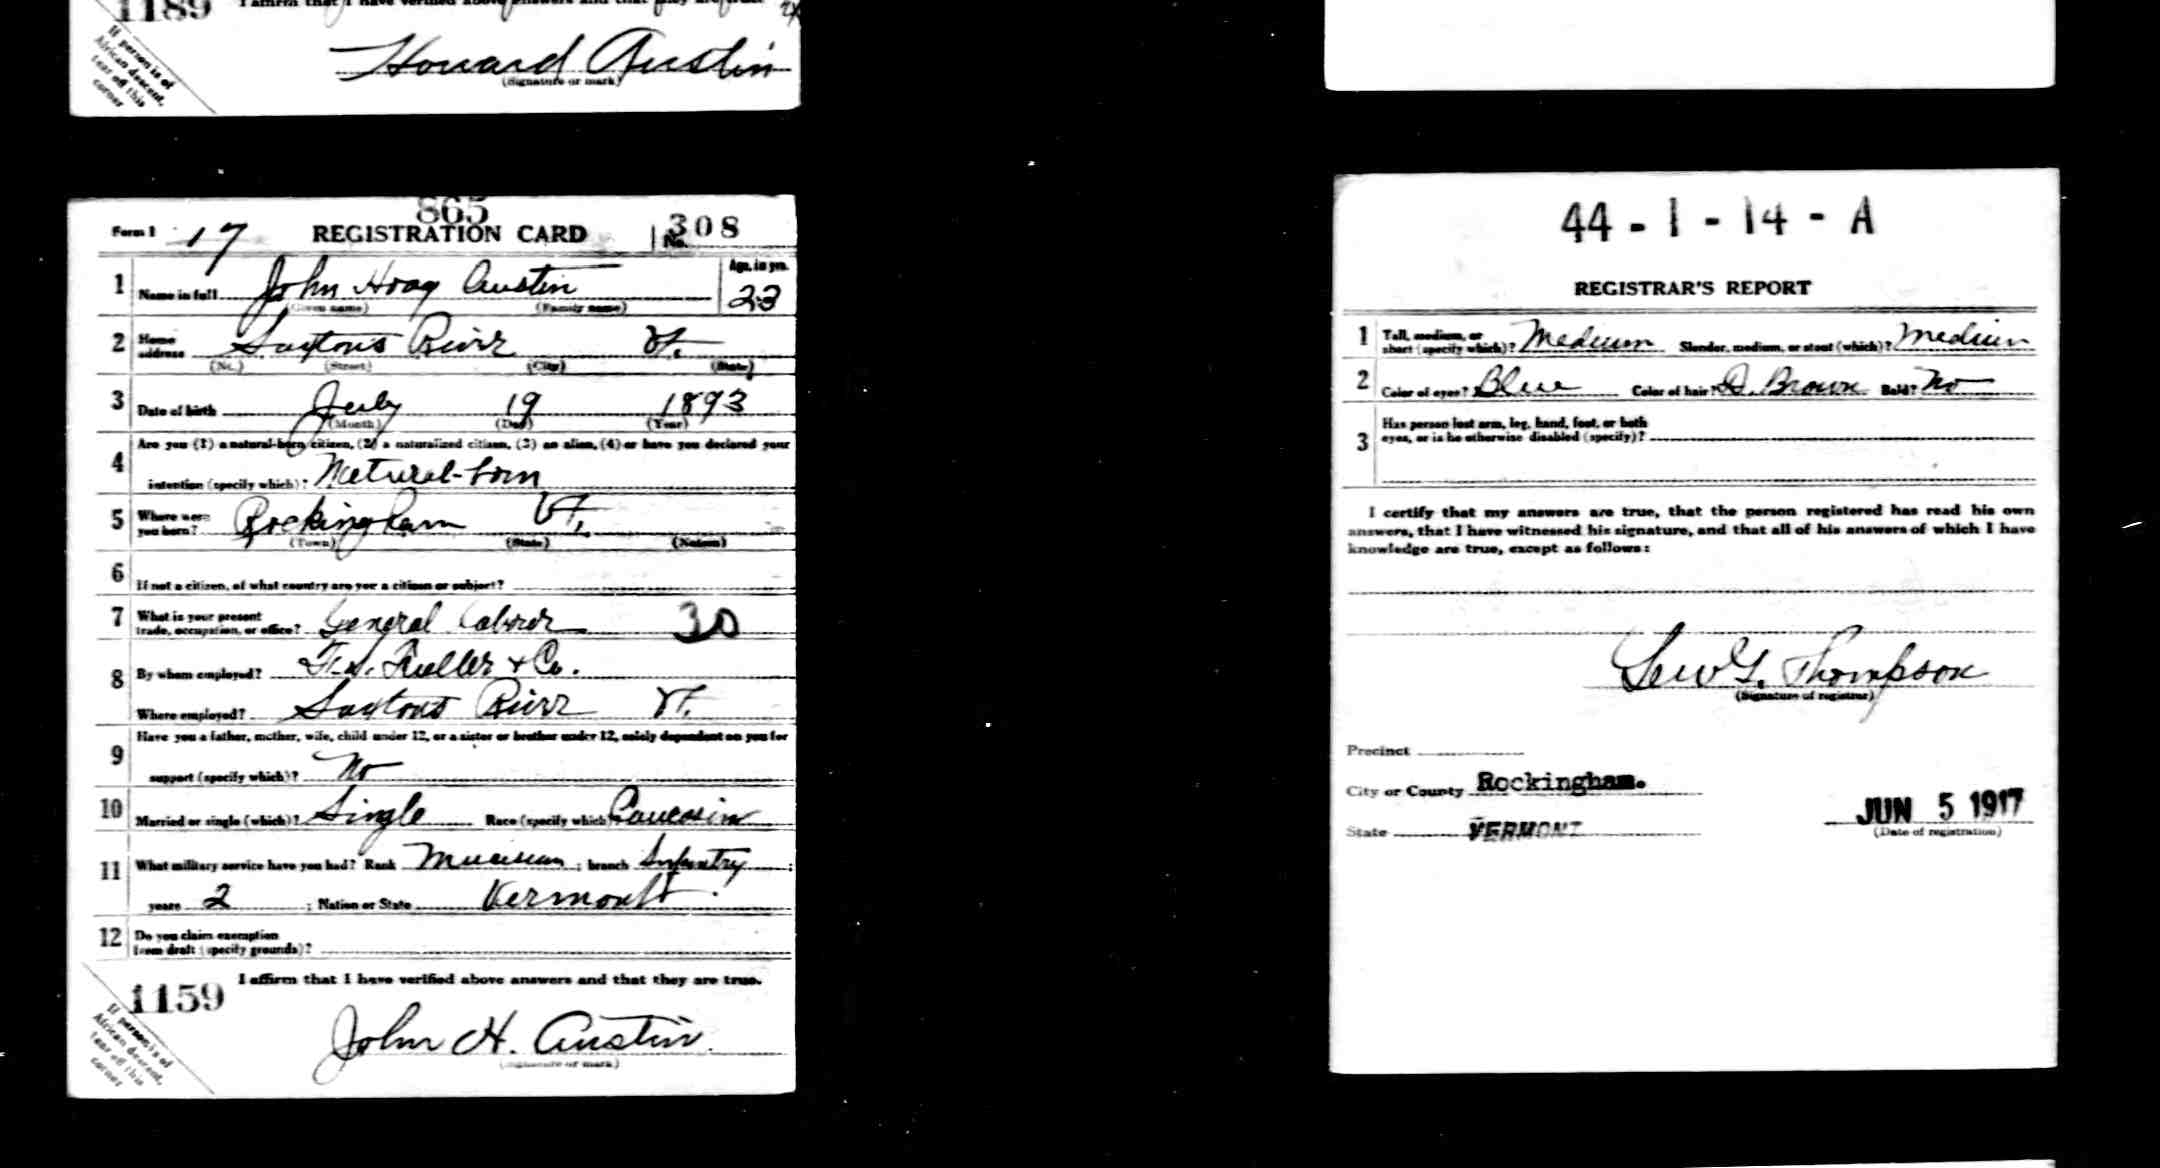 1189
If person is of
African descent,
tear off this
corner
Howard Austin
(Signature or mark)
865
Form 1 17 REGISTRATION CARD No. 308
1 Name in full John Hoag Austin Age, in yrs. 23
(Given name) (Family name)
2 Home address Saxtons River Vt.
(No.) (Street) (City) (State)
3 Date of birth July 19 1893
(Month) (Day) (Year)
4 Are you (1) a natural-born citizen, (2) a naturalized citizen, (3) an alien, (4) or have you declared your
intention (specify which)? Natural-born
5 Where were you born? Rockingham Vt.
(Town) (State) (Nation)
6 If not a citizen, of what country are you a citizen or subject?
7 What is your present trade, occupation, or office? General Laborer 30
8 By whom employed? Fuller & Co.
Where employed? Saxtons River Vt.
9 Have you a father, mother, wife, child under 12, or a sister or brother under 12, solely dependent on you for
support (specify which)? No
10 Married or single (which)? Single Race (specify which) Caucasin
11 What military service have you had? Rank Musician ; branch Infantry ;
years 2 ; Nation or State Vermont
12 Do you claim exemption
from draft (specify grounds)?
I affirm that I have verified above answers and that they are true.
1159
If person is of
African descent,
tear off this
corner
John H. Austin
(Signature or mark)
44-1-14-A
REGISTRAR'S REPORT
1 Tall, medium, or short (specify which)? Medium Slender, medium, or stout (which)? Medium
2 Color of eyes? Blue Color of hair? D. Brown Bald? No
3 Has person lost arm, leg, hand, foot, or both
eyes, or is he otherwise disabled (specify)?
I certify that my answers are true, that the person registered has read his own
answers, that I have witnessed his signature, and that all of his answers of which I have
knowledge are true, except as follows:
Thompson
(Signature of registrar)
Precinct
City or County Rockingham.
State VERMONT
JUN 5 1917
(Date of registration)